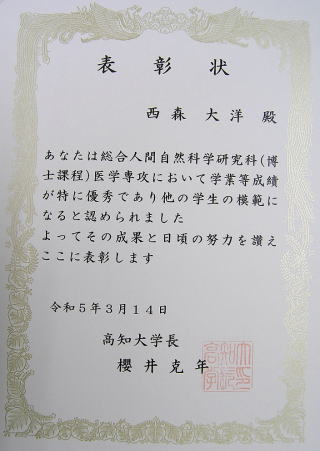 表彰状
西森 大洋 殿
あなたは総合人間自然科学研究科(博
士課程)医学専攻において学業等成績
が特に優秀であり他の学生の模範に
なると認められました
よってその成果と日頃の努力を讃え
ここに表彰します
令和5年3月14日
高知大学長
櫻井克年